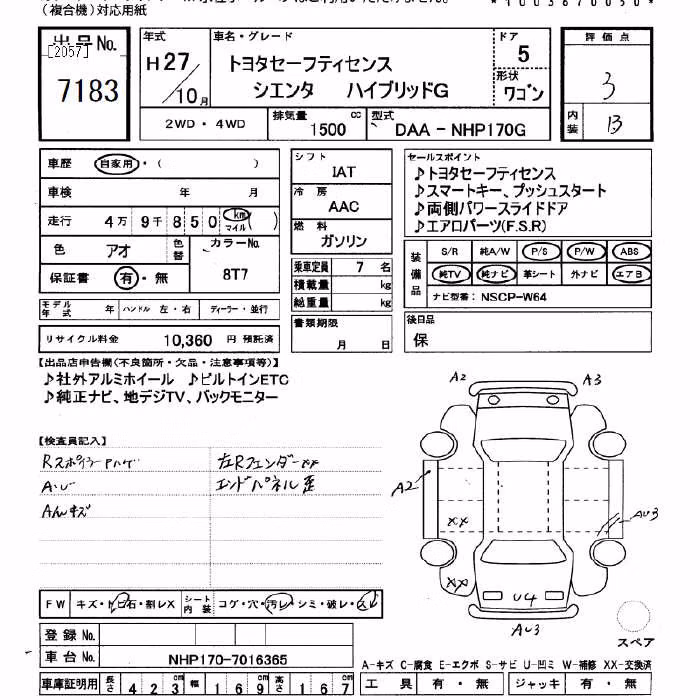 (複合機)対応用紙
*1003670050*
出品No.
[2057]
7183
年式
H27/10月
車名・グレード
トヨタセーフティセンス
シエンタ ハイブリッドG
ドア
5
形状
ワゴン
評価点
3
内装
B
2WD・4WD
排気量 1500 cc
型式 DAA-NHP170G
車歴 自家用・( )
車検 年 月
走行 4万9千850 km マイル ( )
色 アオ 色替 カラーNo. 8T7
保証書 有・無
シフト IAT
冷房 AAC
燃料 ガソリン
乗車定員 7名
積載量 kg
総重量 kg
セールスポイント
♪トヨタセーフティセンス
♪スマートキー、プッシュスタート
♪両側パワースライドドア
♪エアロパーツ(F.S.R)
装備品
S/R 純A/W P/S P/W ABS
純TV 純ナビ 革シート 外ナビ エアB
ナビ型番: NSCP-W64
モデル年式 年 ハンドル 左・右 ディーラー・並行
リサイクル料金 10,360 円 預託済
書類期限 月 日
後日品
保
【出品店申告欄(不良箇所・欠品・注意事項等)】
♪社外アルミホイール ♪ビルトインETC
♪純正ナビ、地デジTV、バックモニター
【検査員記入】
Rスポイラーアハゲ 左Rフェンダーxx
A・U エンドパネル歪
Aんキズ
A2 A3
A2 AU3
XX
XX U4
AU3
スペア
FW キズ・トビ石・割レX シート内装 コゲ・穴・汚レ・シミ・破レ・スレ
登録No.
車台No. NHP170-7016365
A-キズ C-腐食 E-エクボ S-サビ U-凹ミ W-補修 XX-交換済
車庫証明用 長さ 423cm 幅 169cm 高さ 167cm
工具 有・無 ジャッキ 有・無